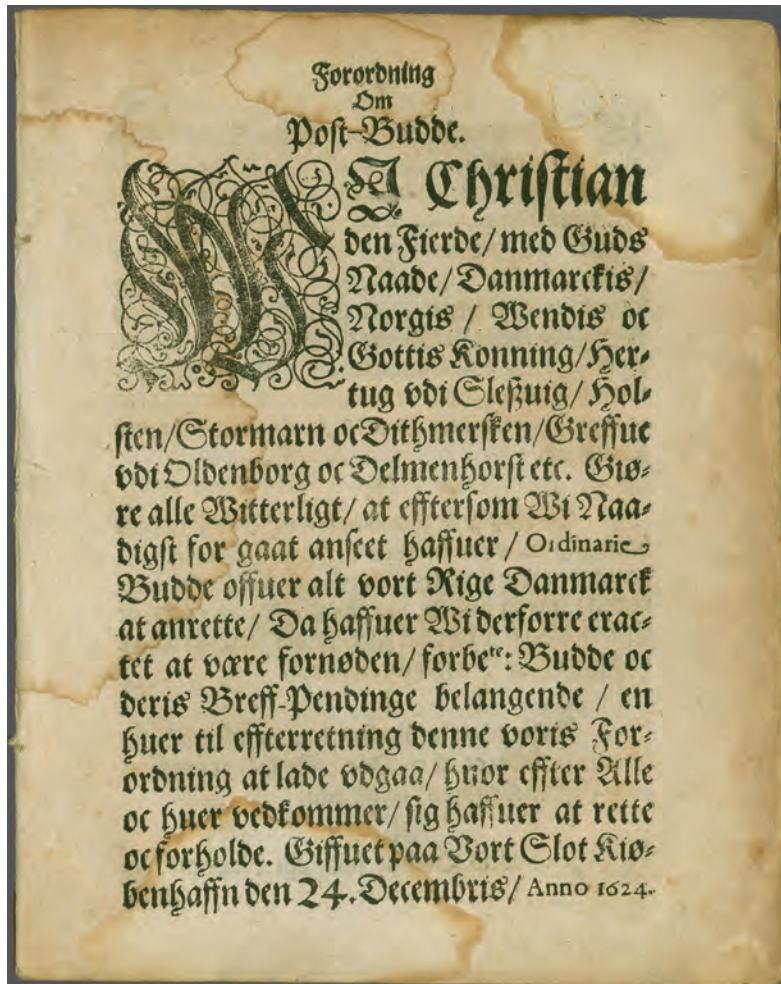 Forordning
Om
Post-Budde.
WI Christian
den Fierde/ med Guds
Naade/ Danmarckis/
Norgis / Wendis oc
Gottis Konning/ Her-
tug vdi Sleßuig/ Hol-
sten/Stormarn oc Dithmersken/Greffue
vdi Oldenborg oc Delmenhorst etc. Giø-
re alle Witterligt/ at efftersom Wi Naa-
digst for gaat anseet haffuer / Ordinarie
Budde offuer alt vort Rige Danmarck
at anrette/ Da haffuer Wi derforre erac-
tet at være fornøden/ forbete: Budde oc
deris Breff-Pendinge belangende / en
huer til effterretning denne voris For-
ordning at lade vdgaa/ huor effter Alle
oc huer vedkommer/ sig haffuer at rette
oc forholde. Giffuet paa Vort Slot Kiø-
benhaffn den 24. Decembris/ Anno 1624.